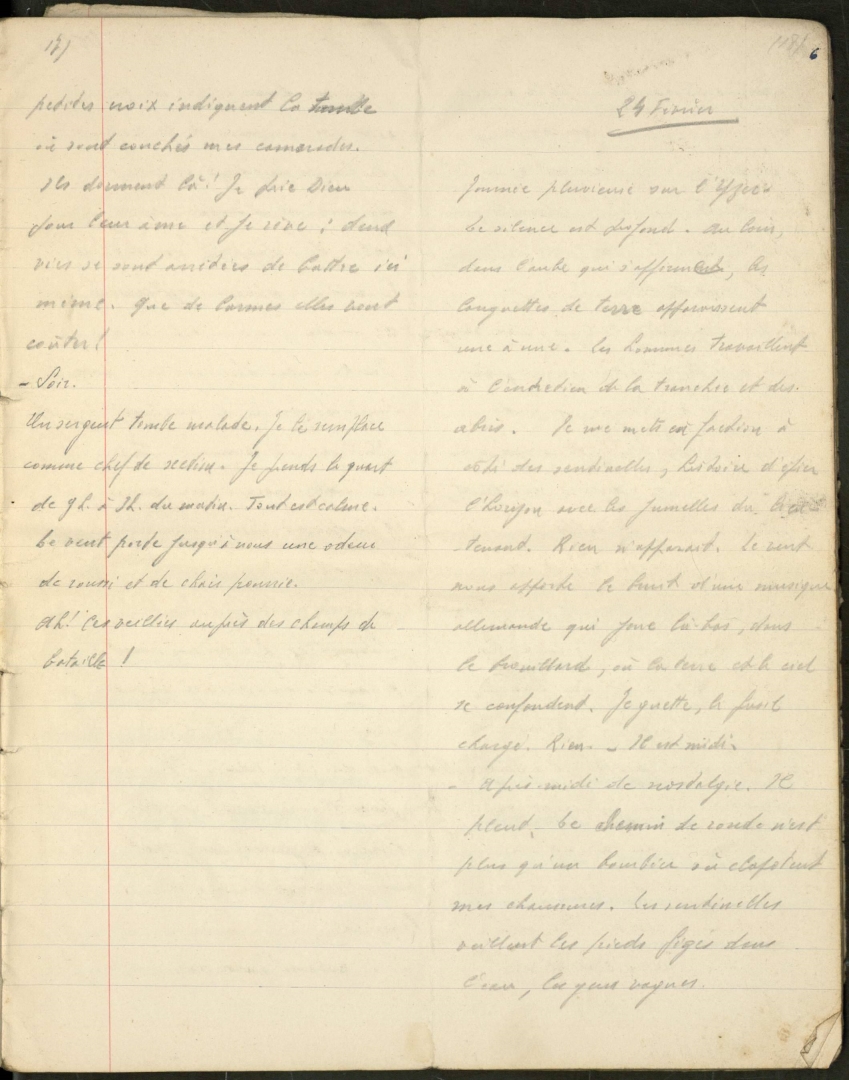 17)
petites croix indiquent la tombe
où sont couchés mes camarades.
Ils dorment là! Je prie Dieu
pour leur âme et je rêve : deux
vies se sont arrêtées de battre ici
même. Que de larmes elles vont
coûter!
- Soir.
Un sergent tombe malade. Je le remplace
comme chef de section. Je prends le quart
de 9h. à 3h. du matin. Tout est calme.
Le vent porte jusqu'à nous une odeur
de roussi et de chair pourrie.
Ah! Ces veillées auprès des champs de
bataille!
(18) 6
24 Février
Journée pluvieuse sur l'Yser.
Le silence est profond. Au loin,
dans l'aube qui s'affirme, les
languettes de terre apparaissent
une à une. Les hommes travaillent
à l'entretien de la tranchée et des
abris. Je me mets en faction à
côté des sentinelles, histoire d'épier
l'horizon avec les jumelles du lieu
tenant. Rien n'apparait. Le vent
nous apporte le bruit d'une musique
allemande qui joue là-bas, dans
le brouillard, où la terre et le ciel
se confondent. Je guette, le fusil
chargé. Rien. - Il est midi.
- Après-midi de nostalgie. Il
pleut. Le chemin de ronde n'est
plus qu'un bourbier où clapotent
mes chaussures. Les sentinelles
veillent les pieds figés dans
l'eau, les yeux vagues.